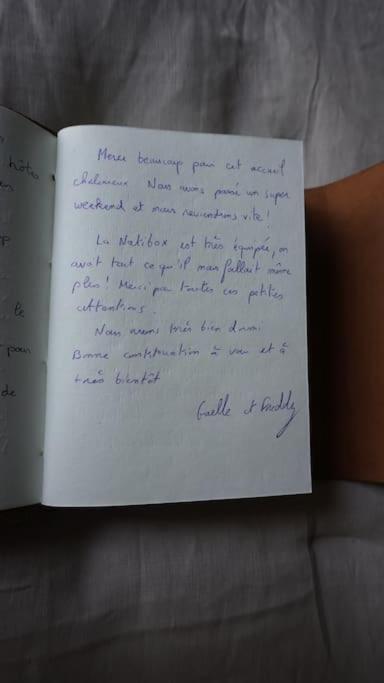 hôtes
le
pour
de
Merci beaucoup pour cet accueil
chaleureux Nous avons passé un super
weekend et nous reviendrons vite !
La Natibox est très équipée, on
avait tout ce qu'il nous fallait même
plus ! Merci pour toutes ces petites
attentions.
Nous avons très bien dormi
Bonne continuation à vous et à
très bientôt
Gaelle et Freddy